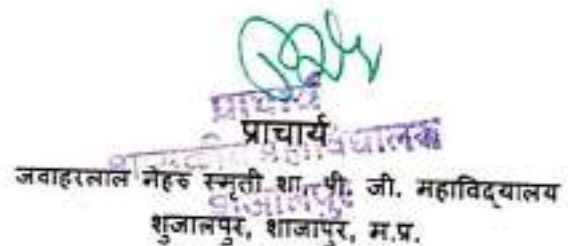 प्राचार्य
प्राचार्य
जवाहरलाल नेहरु स्मृती शा. पी. जी. महाविद्यालय
शुजालपुर, शाजापुर, म.प्र.